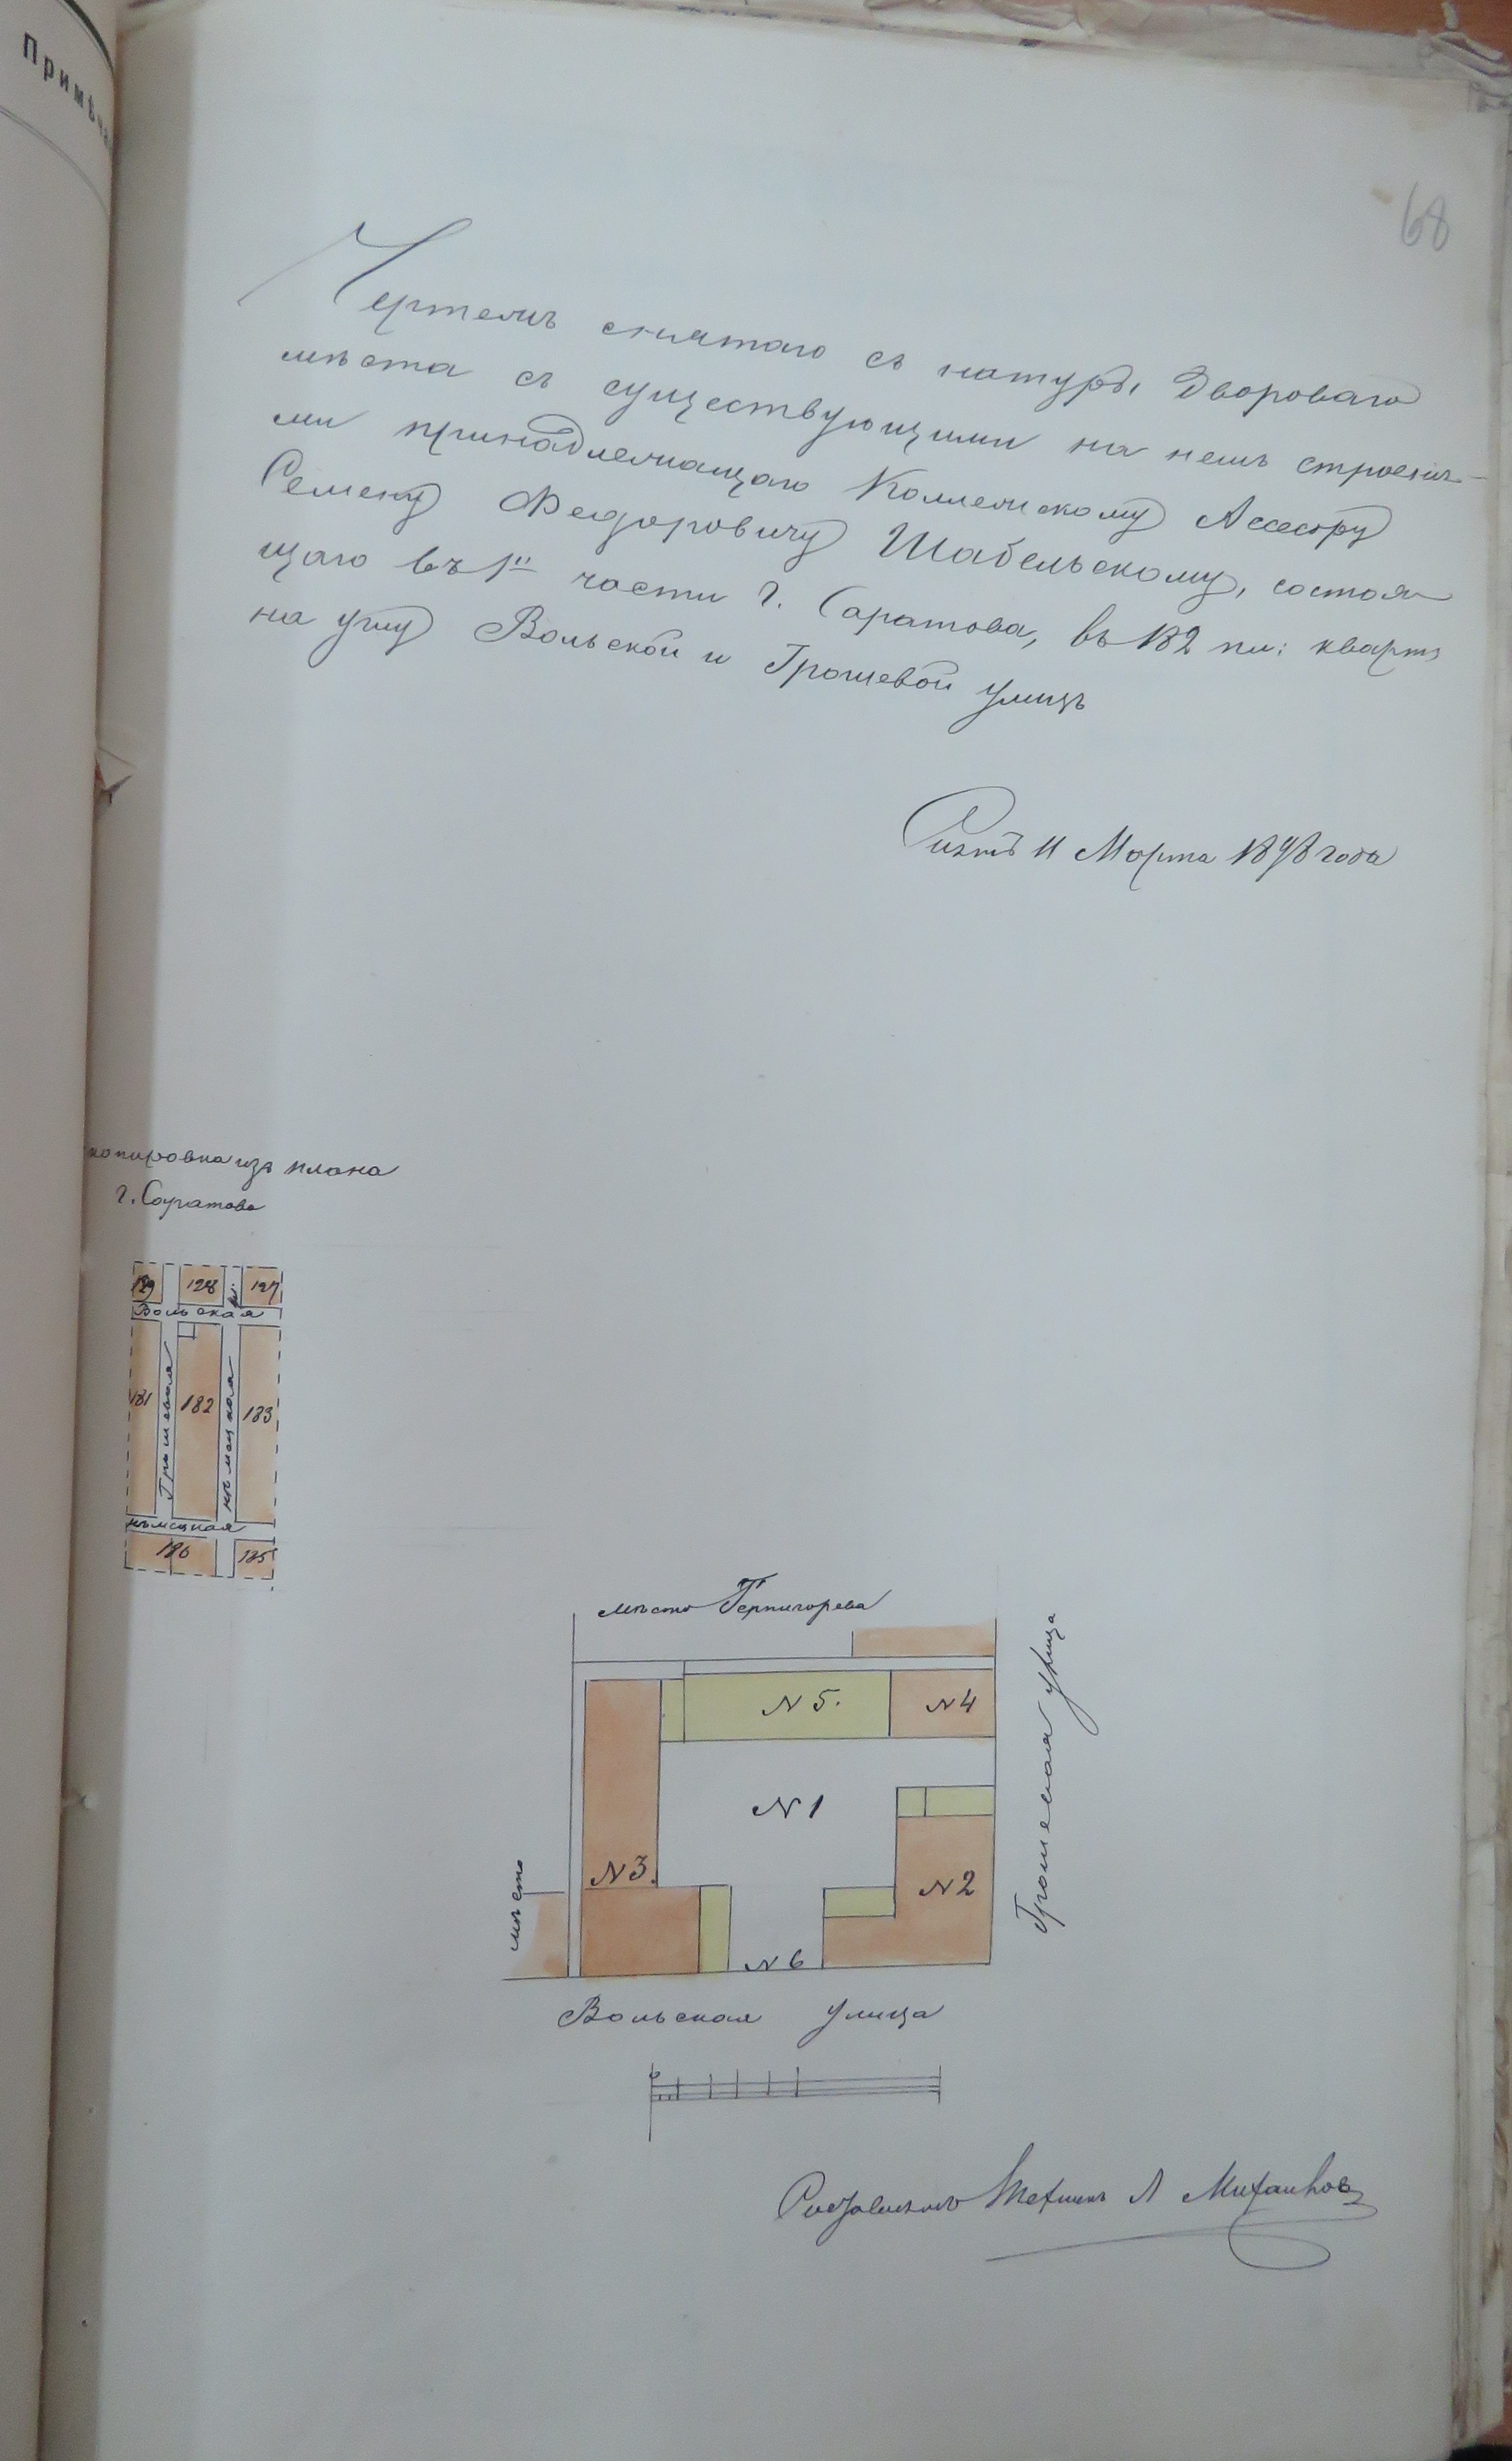 Примѣча
68
Чертежъ снятаго съ натуры Двороваго
мѣста съ существующими на немъ строенiя-
ми принадлежащаго Коллежскому Ассесору
Семену Федоровичу Шабельскому, состоя
щаго въ 1й части г. Саратова, въ 182 пл: кварт
на углу Вольской и Грошевой улицъ
Снятъ 11 Марта 1898 года
копировка изъ плана
г. Саратова
129 128 127
Вольская
181 Грошевая 182 183
нѣмецкая
186 185
мѣсто Терпигорева
N 5. N 4
N 1
N 3. N 2
мѣсто
N 6
Грошевая улица
Вольская улица
Техникъ А Михайловъ